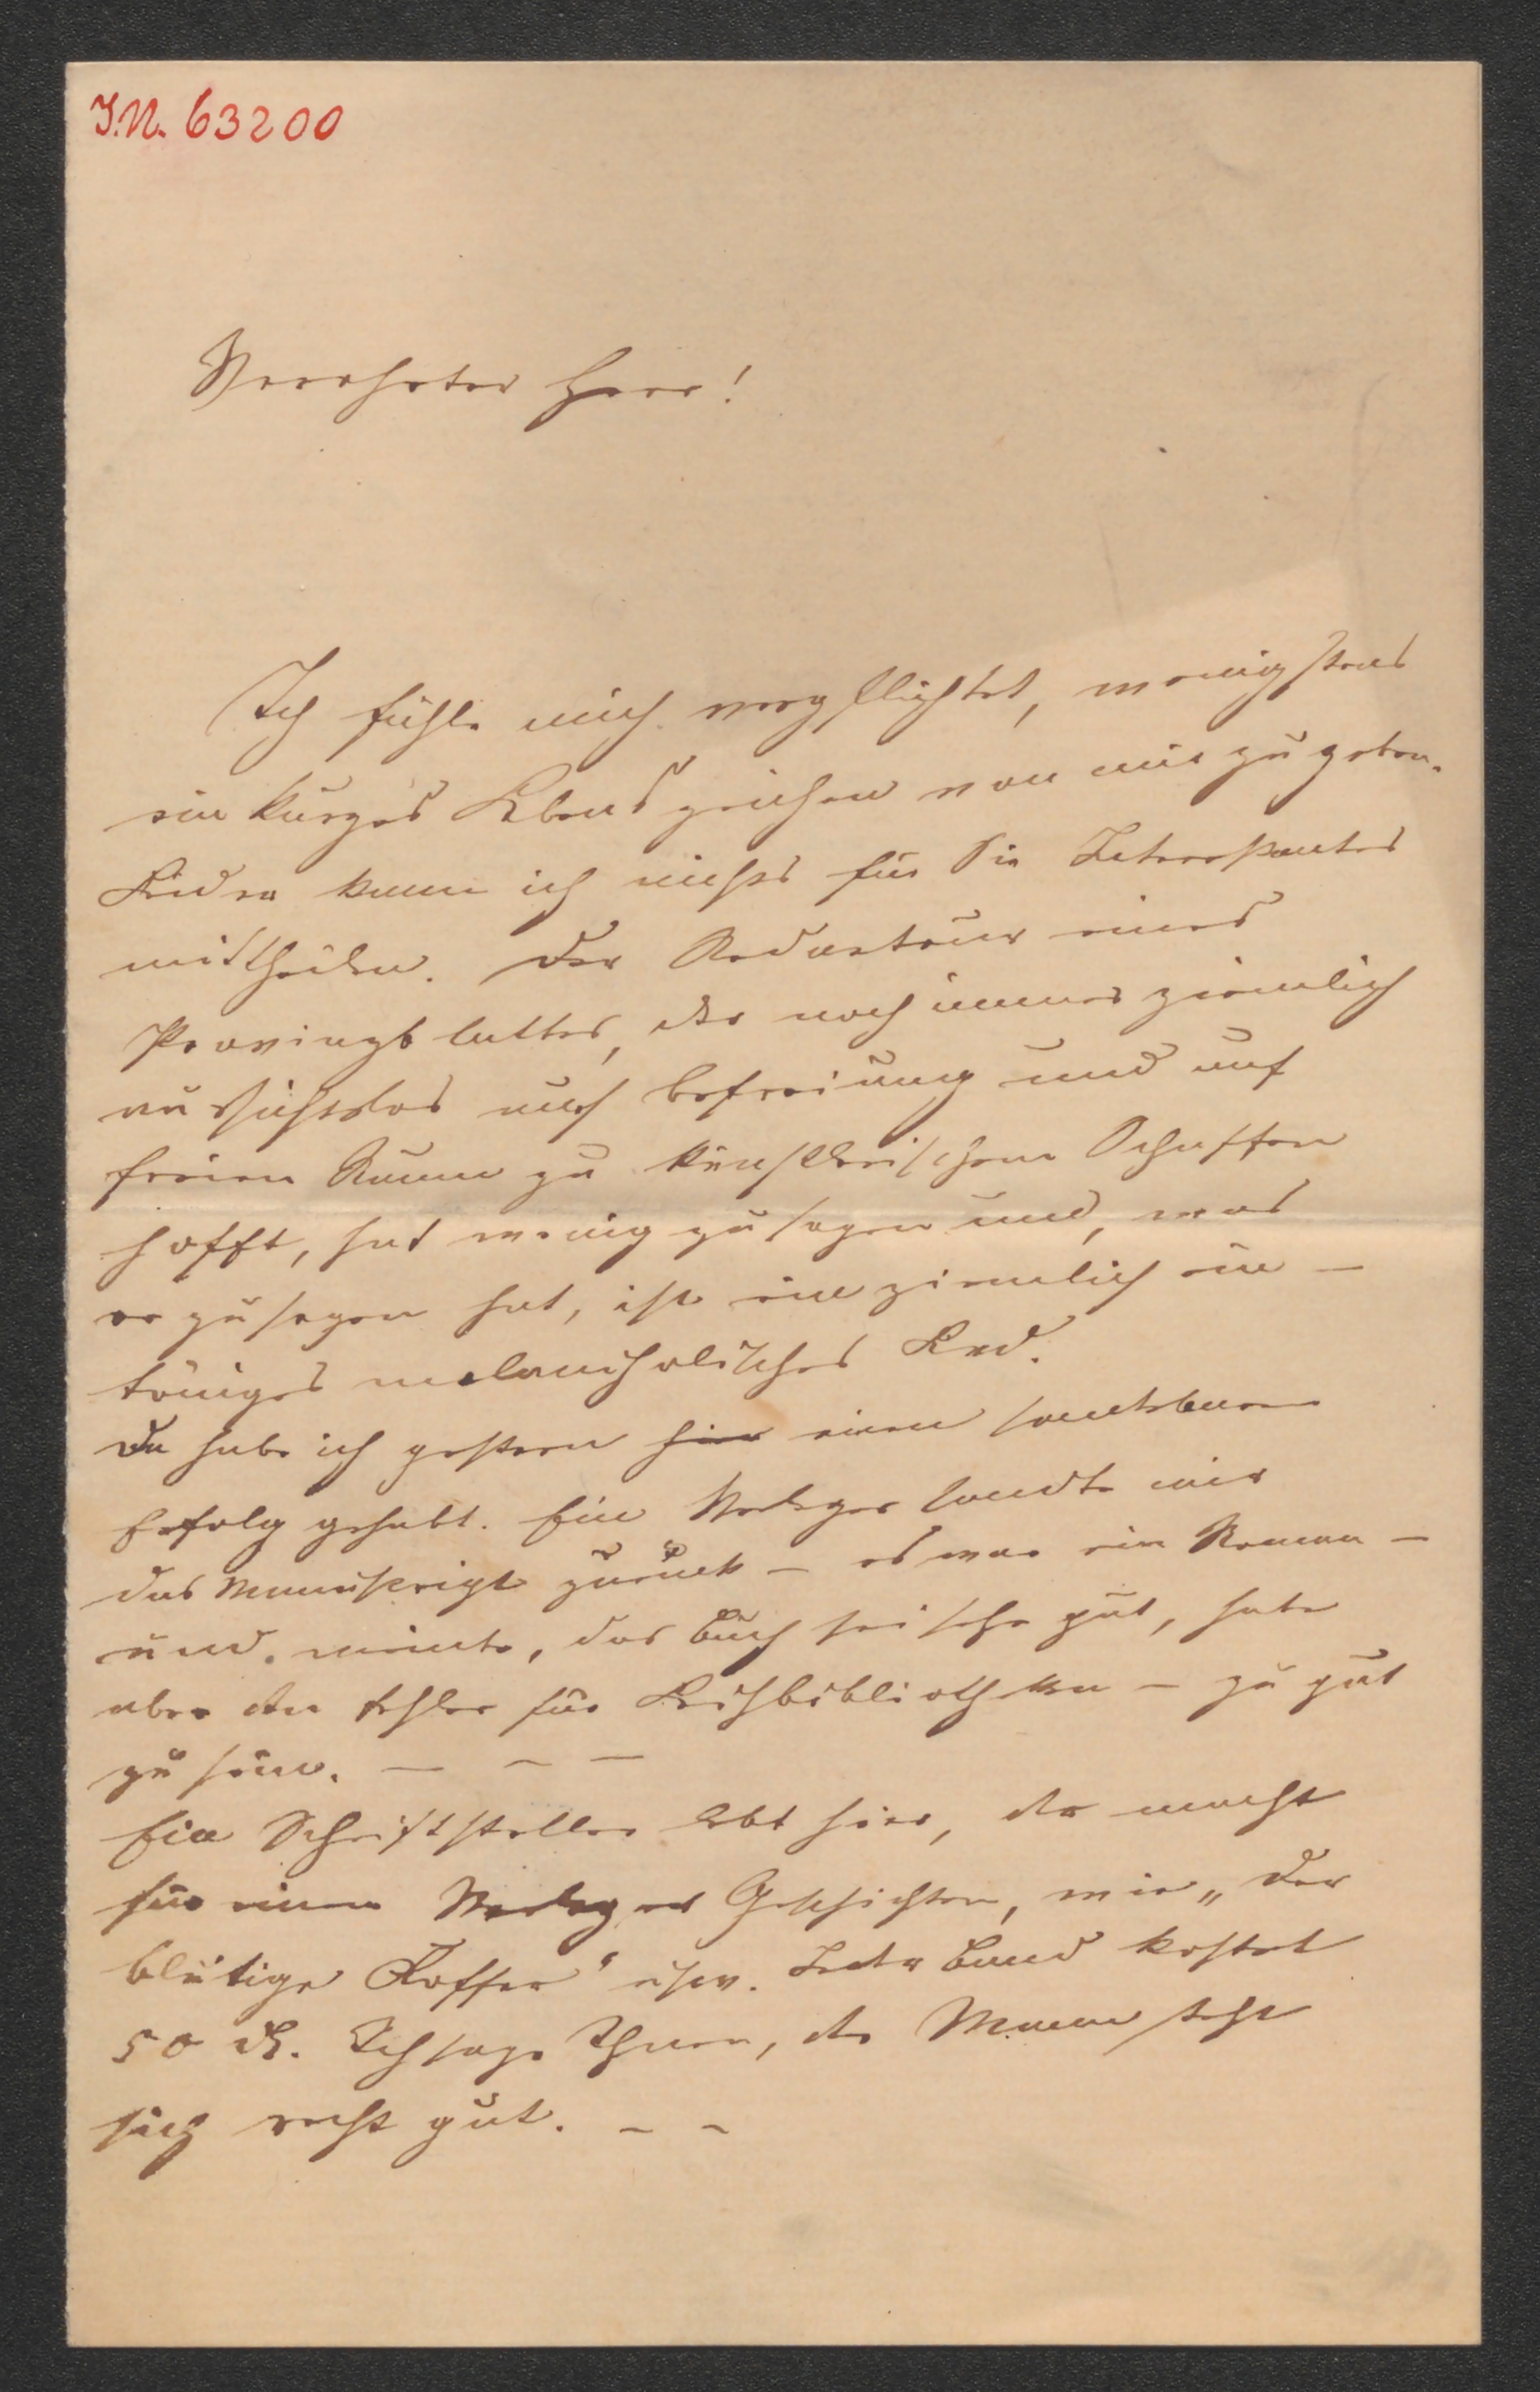 I.N. 63200
Verehrter Herr!
Ich fühle mich verpflichtet, wenigstens
ein kurzes Lebenszeichen von mir zu geben.
Leider kann ich nichts für Sie Interessantes
mittheilen. Der Redacteur eines
Provinzblattes, der noch immer ziemlich
aussichtslos auf Befreiung und auf
freien Raum zu künstlerischem Schaffen
hofft, hat wenig zu sagen und, was
er zu sagen hat, ist ein ziemlich ein-
töniges melancholisches Lied.
Da habe ich gestern hier einen sonderbaren
Erfolg gehabt. Ein Verleger sandte mir
das Manuskript zurück – es war ein Roman –
und meinte, das Buch sei sehr gut, habe
aber den Fehler für Leihbibliotheken – zu gut
zu sein. – – –
Ein Schriftsteller lebt hier, der macht
für einen Verleger Geschichten, wie „Der
blutige Koffer" usw. Jeder Band kostet
50 K. Ich sage Ihnen, der Mann steht
sich recht gut. – –